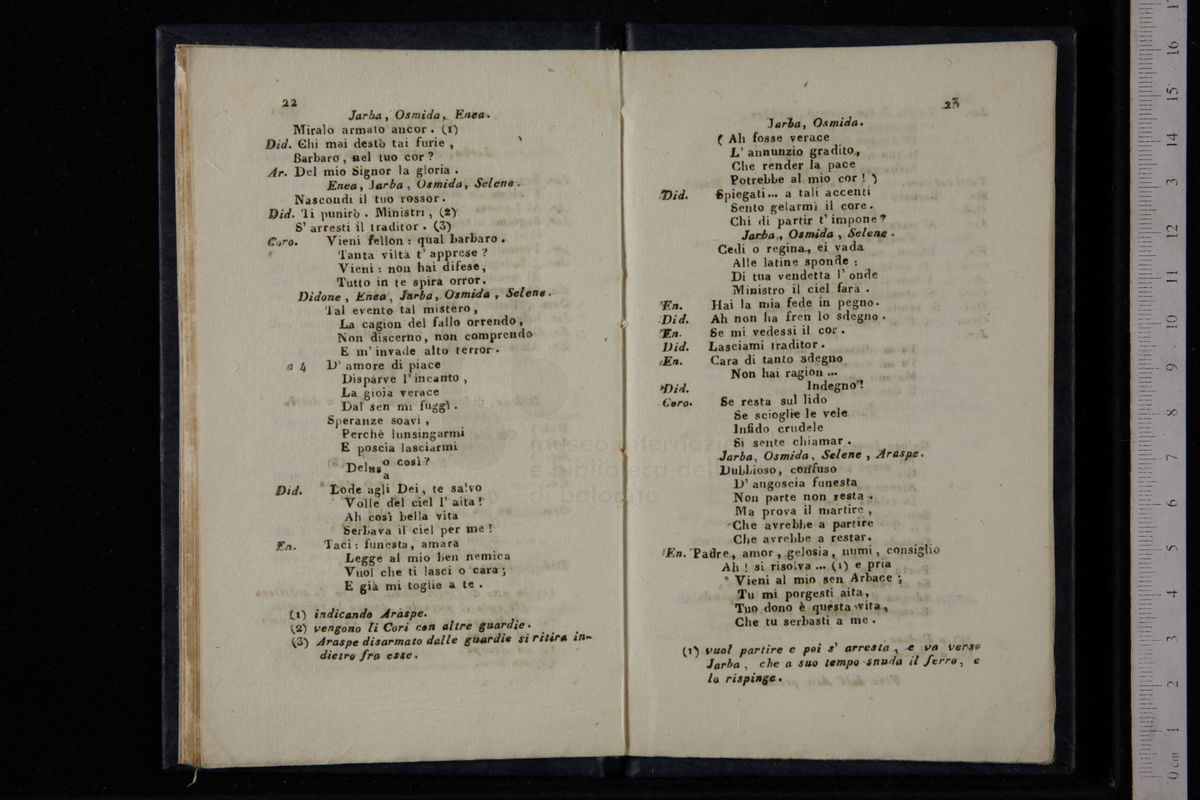 22
Jarba, Osmida, Enea.
Miralo armato ancor. (1)
Did. Chi mai destò tai furie,
Barbaro, nel tuo cor?
Ar. Del mio Signor la gloria.
Enea, Jarba, Osmida, Selene.
Nascondi il tuo rossor.
Did. Ti punirò. Ministri, (2)
S' arresti il traditor. (3)
Coro. Vieni fellon: qual barbaro.
Tanta viltà t' apprese?
Vieni: non hai difese,
Tutto in te spira orror.
Didone, Enea, Jarba, Osmida, Selene.
Tal evento tal mistero,
La cagion del fallo orrendo,
Non discerno, non comprendo
E m' invade alto terror.
a 4 D' amore di piace
Disparve l' incanto,
La gioia verace
Dal sen mi fuggì.
Speranze soavi,
Perchè lunsingarmi
E poscia lasciarmi
Delus o/a così?
Did. Lode agli Dei, te salvo
Volle del ciel l' aita!
Ah così bella vita
Serbava il ciel per me!
En. Taci: funesta, amara
Legge al mio ben nemica
Vuol che ti lasci o cara;
E già mi toglie a te.
(1) indicando Araspe.
(2) vengono li Cori con altre guardie.
(3) Araspe disarmato dalle guardie si ritira in-
dietro fra esse.
23
Jarba, Osmida.
( Ah fosse verace
L' annunzio gradito,
Che render la pace
Potrebbe al mio cor! )
Did. Spiegati... a tali accenti
Sento gelarmi il core.
Chi di partir t' impone?
Jarba, Osmida, Selene.
Cedi o regina, ei vada
Alle latine sponde:
Di tua vendetta l' onde
Ministro il ciel farà.
En. Hai la mia fede in pegno.
Did. Ah non ha fren lo sdegno.
En. Se mi vedessi il cor.
Did. Lasciami traditor.
En. Cara di tanto sdegno
Non hai ragion ...
Did. Indegno!
Coro. Se resta sul lido
Se scioglie le vele
Infido crudele
Si sente chiamar.
Jarba, Osmida, Selene, Araspe.
Dubbioso, confuso
D' angoscia funesta
Non parte non resta.
Ma prova il martire,
Che avrebbe a partire
Che avrebbe a restar.
En. Padre, amor, gelosia, numi, consiglio
Ah! si risolva ... (1) e pria
Vieni al mio sen Arbace;
Tu mi porgesti aita,
Tuo dono è questa vita,
Che tu serbasti a me.
(1) vuol partire e poi s' arresta, e va verso
Jarba, che a suo tempo snuda il ferro, e
lo rispinge.